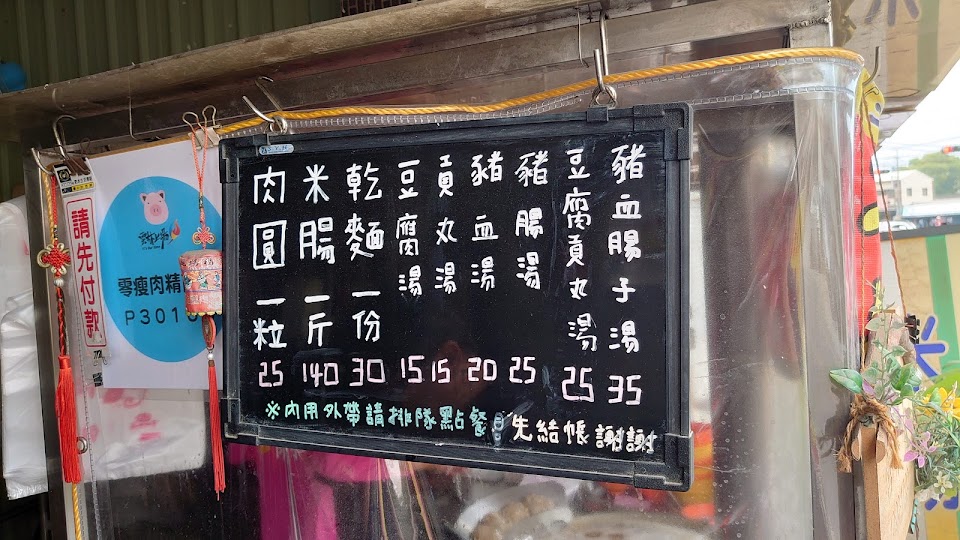 請先付款
零瘦肉精
P301
肉圓一粒 25
米腸一斤 140
乾麵一份 30
豆腐湯 15
貢丸湯 15
豬血湯 20
豬腸湯 25
豆腐貢丸湯 25
豬血腸子湯 35
※內用外帶請排隊點餐
先結帳 謝謝